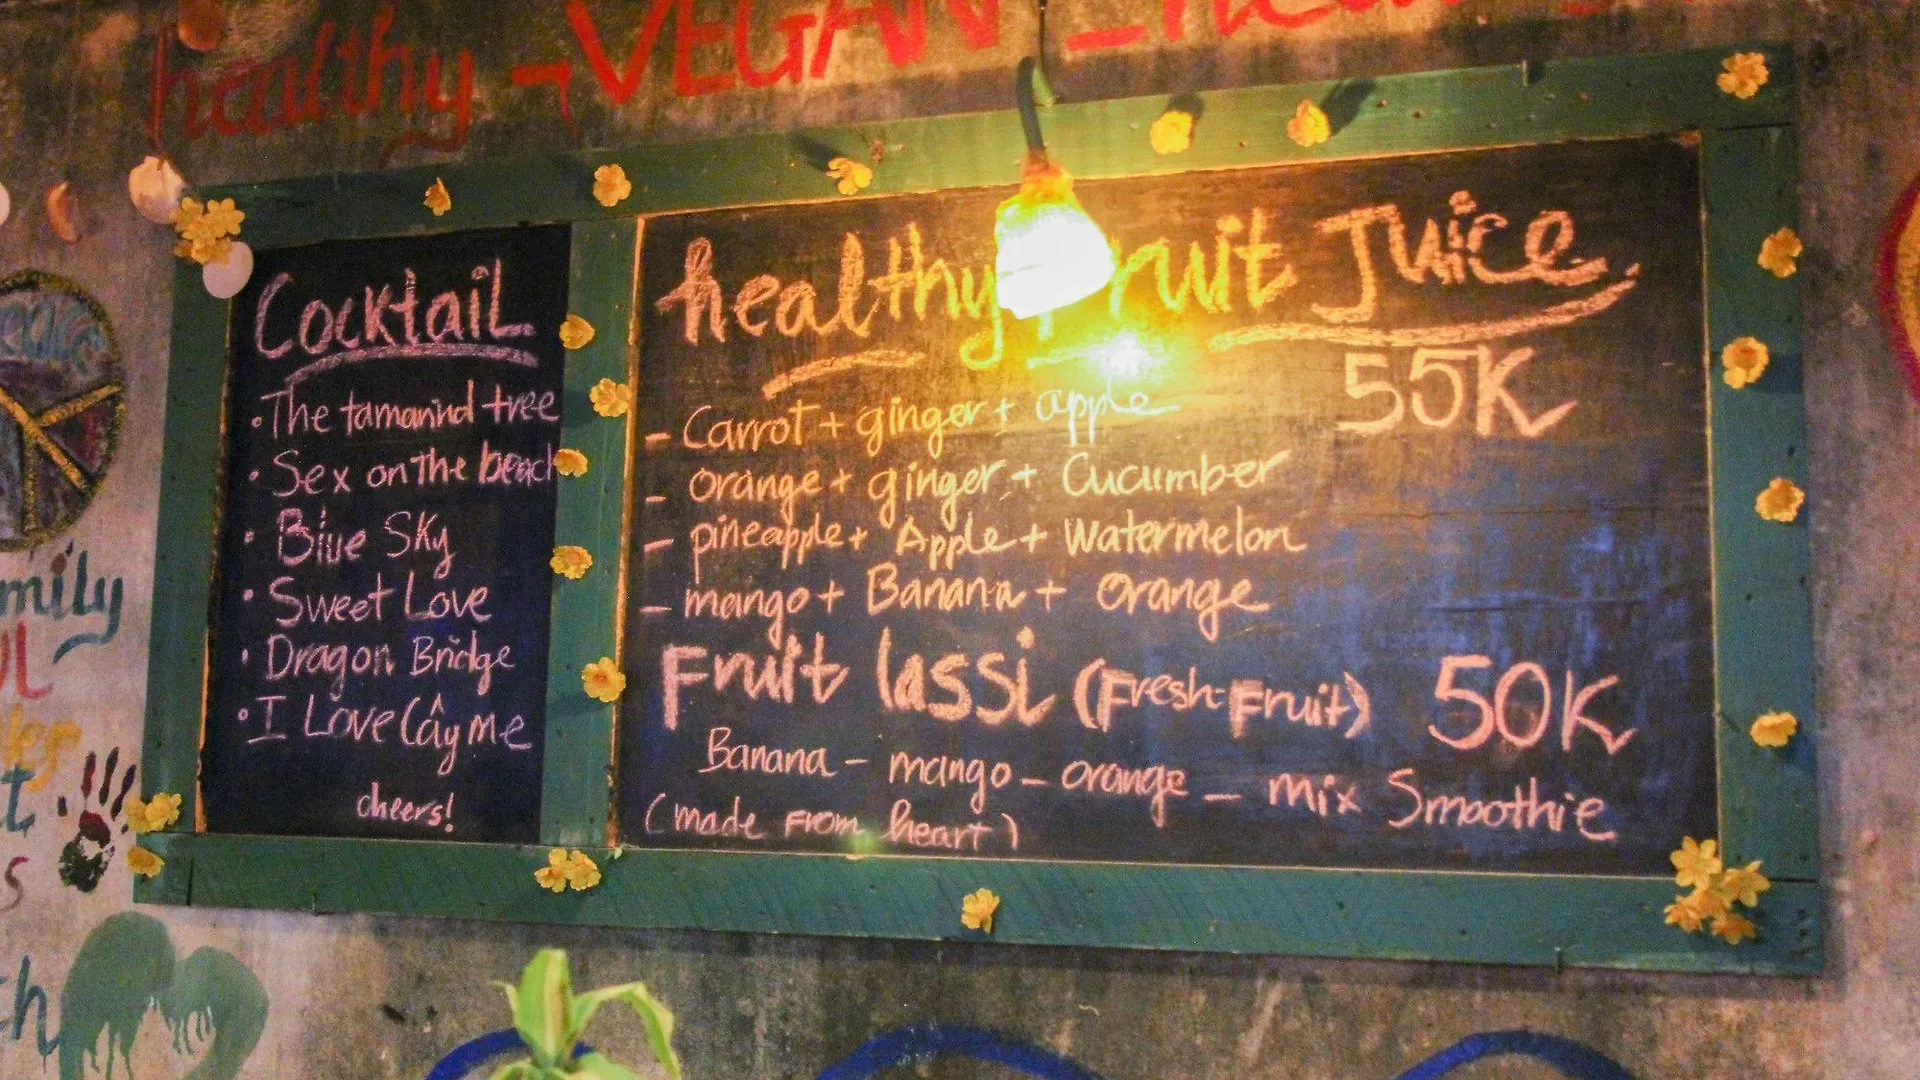 healthy - VEGAN - hea
Cocktail
• The tamarind tree
• Sex on the beach
• Blue Sky
• Sweet Love
• Dragon Bridge
• I Love Cây me
cheers!
healthy Fruit Juice
55K
- Carrot + ginger + apple
- orange + ginger + Cucumber
- pineapple + Apple + Watermelon
- mango + Banana + orange
Fruit lassi (Fresh Fruit) 50K
Banana - mango - orange - mix Smoothie
(made From heart)